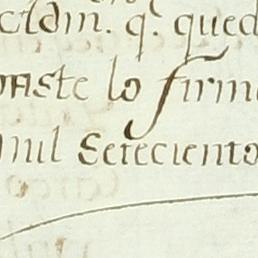 ctam. q. qued
paste lo firme
mil Seteciento